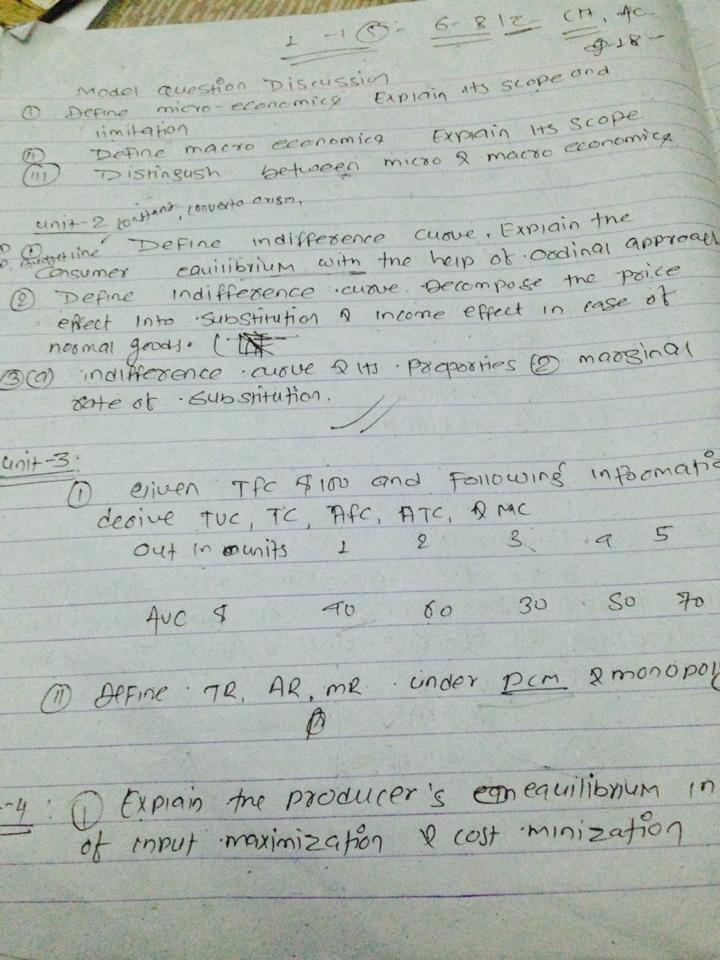 1 - 1 6 - 8 12 CH, AC
Model question Discussion
① Define micro-economics Explain its scope and
limitation
(ii) Define macro economics Explain its scope
(iii) Distingush between micro & macro economics
unit-2 constant,
① Define indifference curve. Explain the
Budget line
Consumer equilibrium with the help of ordinal approach
② Define indifference curve Decompose the price
effect into substitution & income effect in case of
normal goods. (
③(a) indifference curve & its Properties ② marginal
rate of substitution.
unit-3:
① Given TFC $100 and Following informatio
derive TVC, TC, AFC, ATC, & MC
out in units 1 2 3 4 5
AVC $ 40 60 30 50 70
(11) Define TR, AR, MR under PCM & monopoly
-4: ① Explain the producer's equilibrium in
of input maximization & cost minization